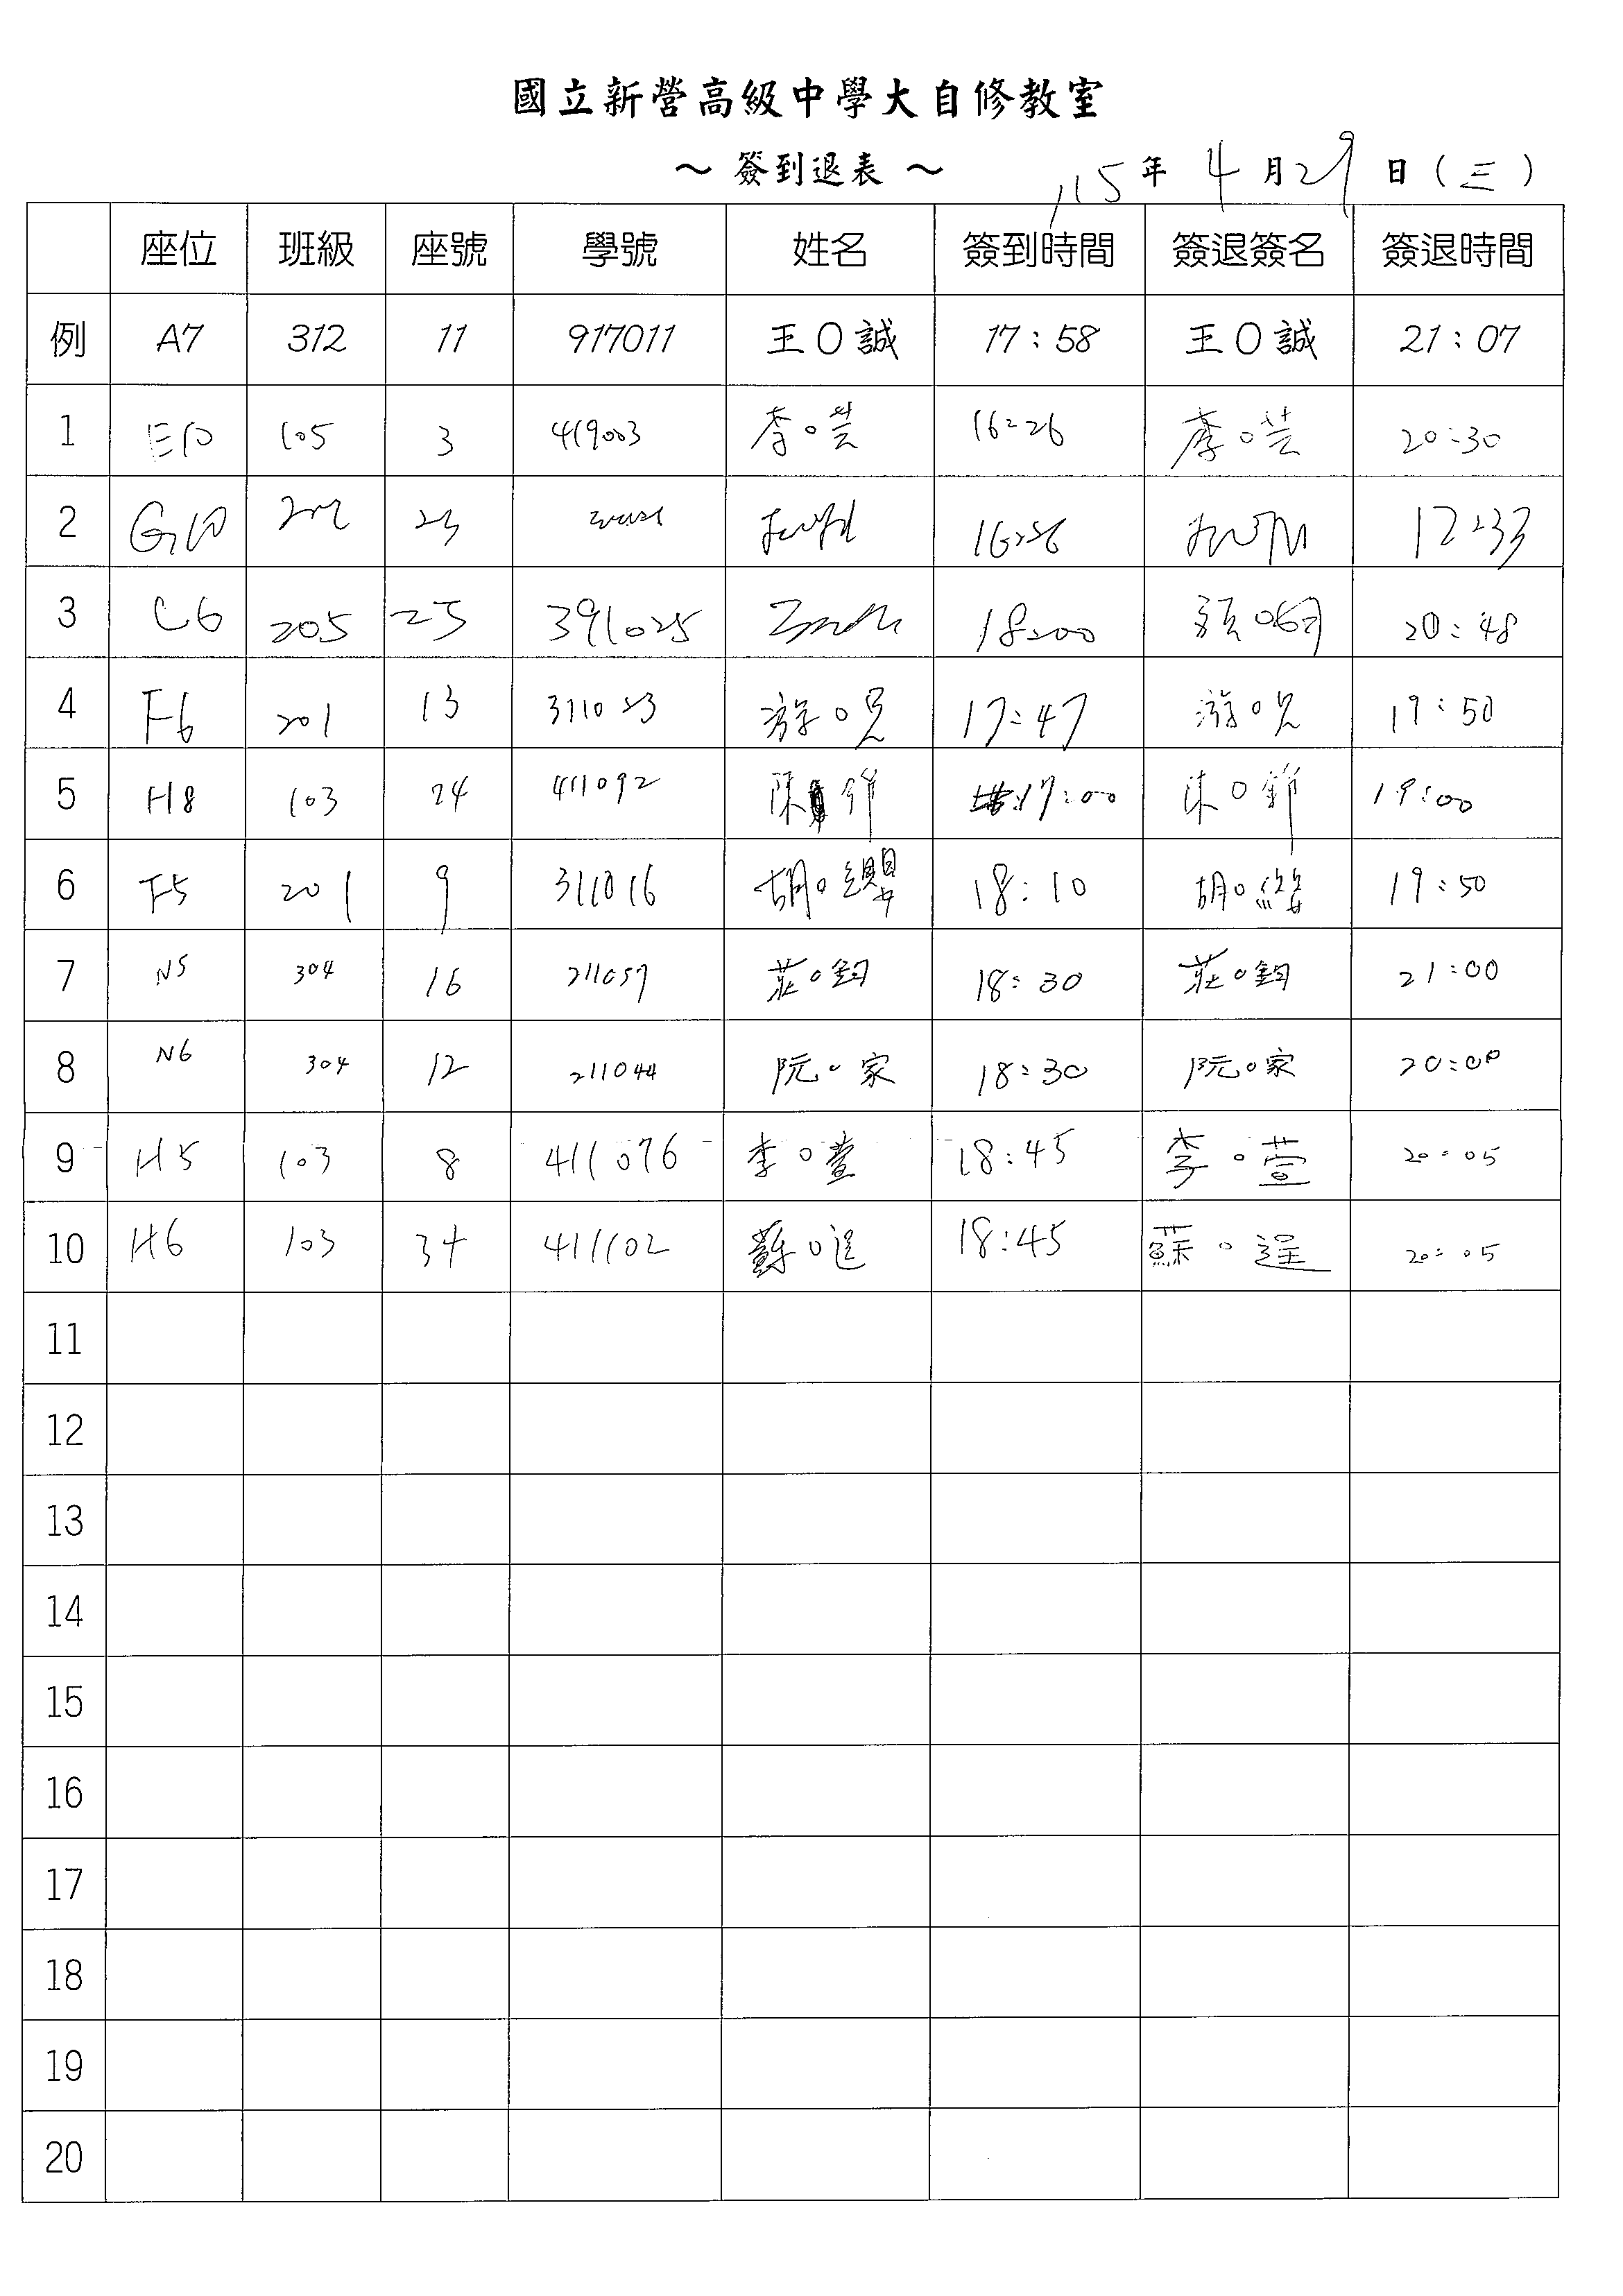 國立新營高級中學大自修教室
～ 簽到退表 ～ 115 年 4 月 29 日 ( 三 )
座位 班級 座號 學號 姓名 簽到時間 簽退簽名 簽退時間
例 A7 312 11 917011 王O誠 17:58 王O誠 21:07
1 E10 105 3 419003 李O芸 16:26 李O芸 20:30
2 G10 23 16:26 17:33
3 C6 205 25 391025 18:00 20:48
4 F6 201 13 311023 游O兒 17:47 游O兒 19:50
5 H8 103 24 411092 陳 17:00 陳O 19:00
6 F5 201 9 311016 胡O纓 18:10 胡O纓 19:50
7 N5 304 16 211057 莊O鈞 18:30 莊O鈞 21:00
8 N6 304 12 211044 阮O家 18:30 阮O家 20:00
9 H5 103 8 411076 李O萱 18:45 李O萱 20:05
10 H6 103 34 411102 蘇O逞 18:45 蘇O逞 20:05
11
12
13
14
15
16
17
18
19
20